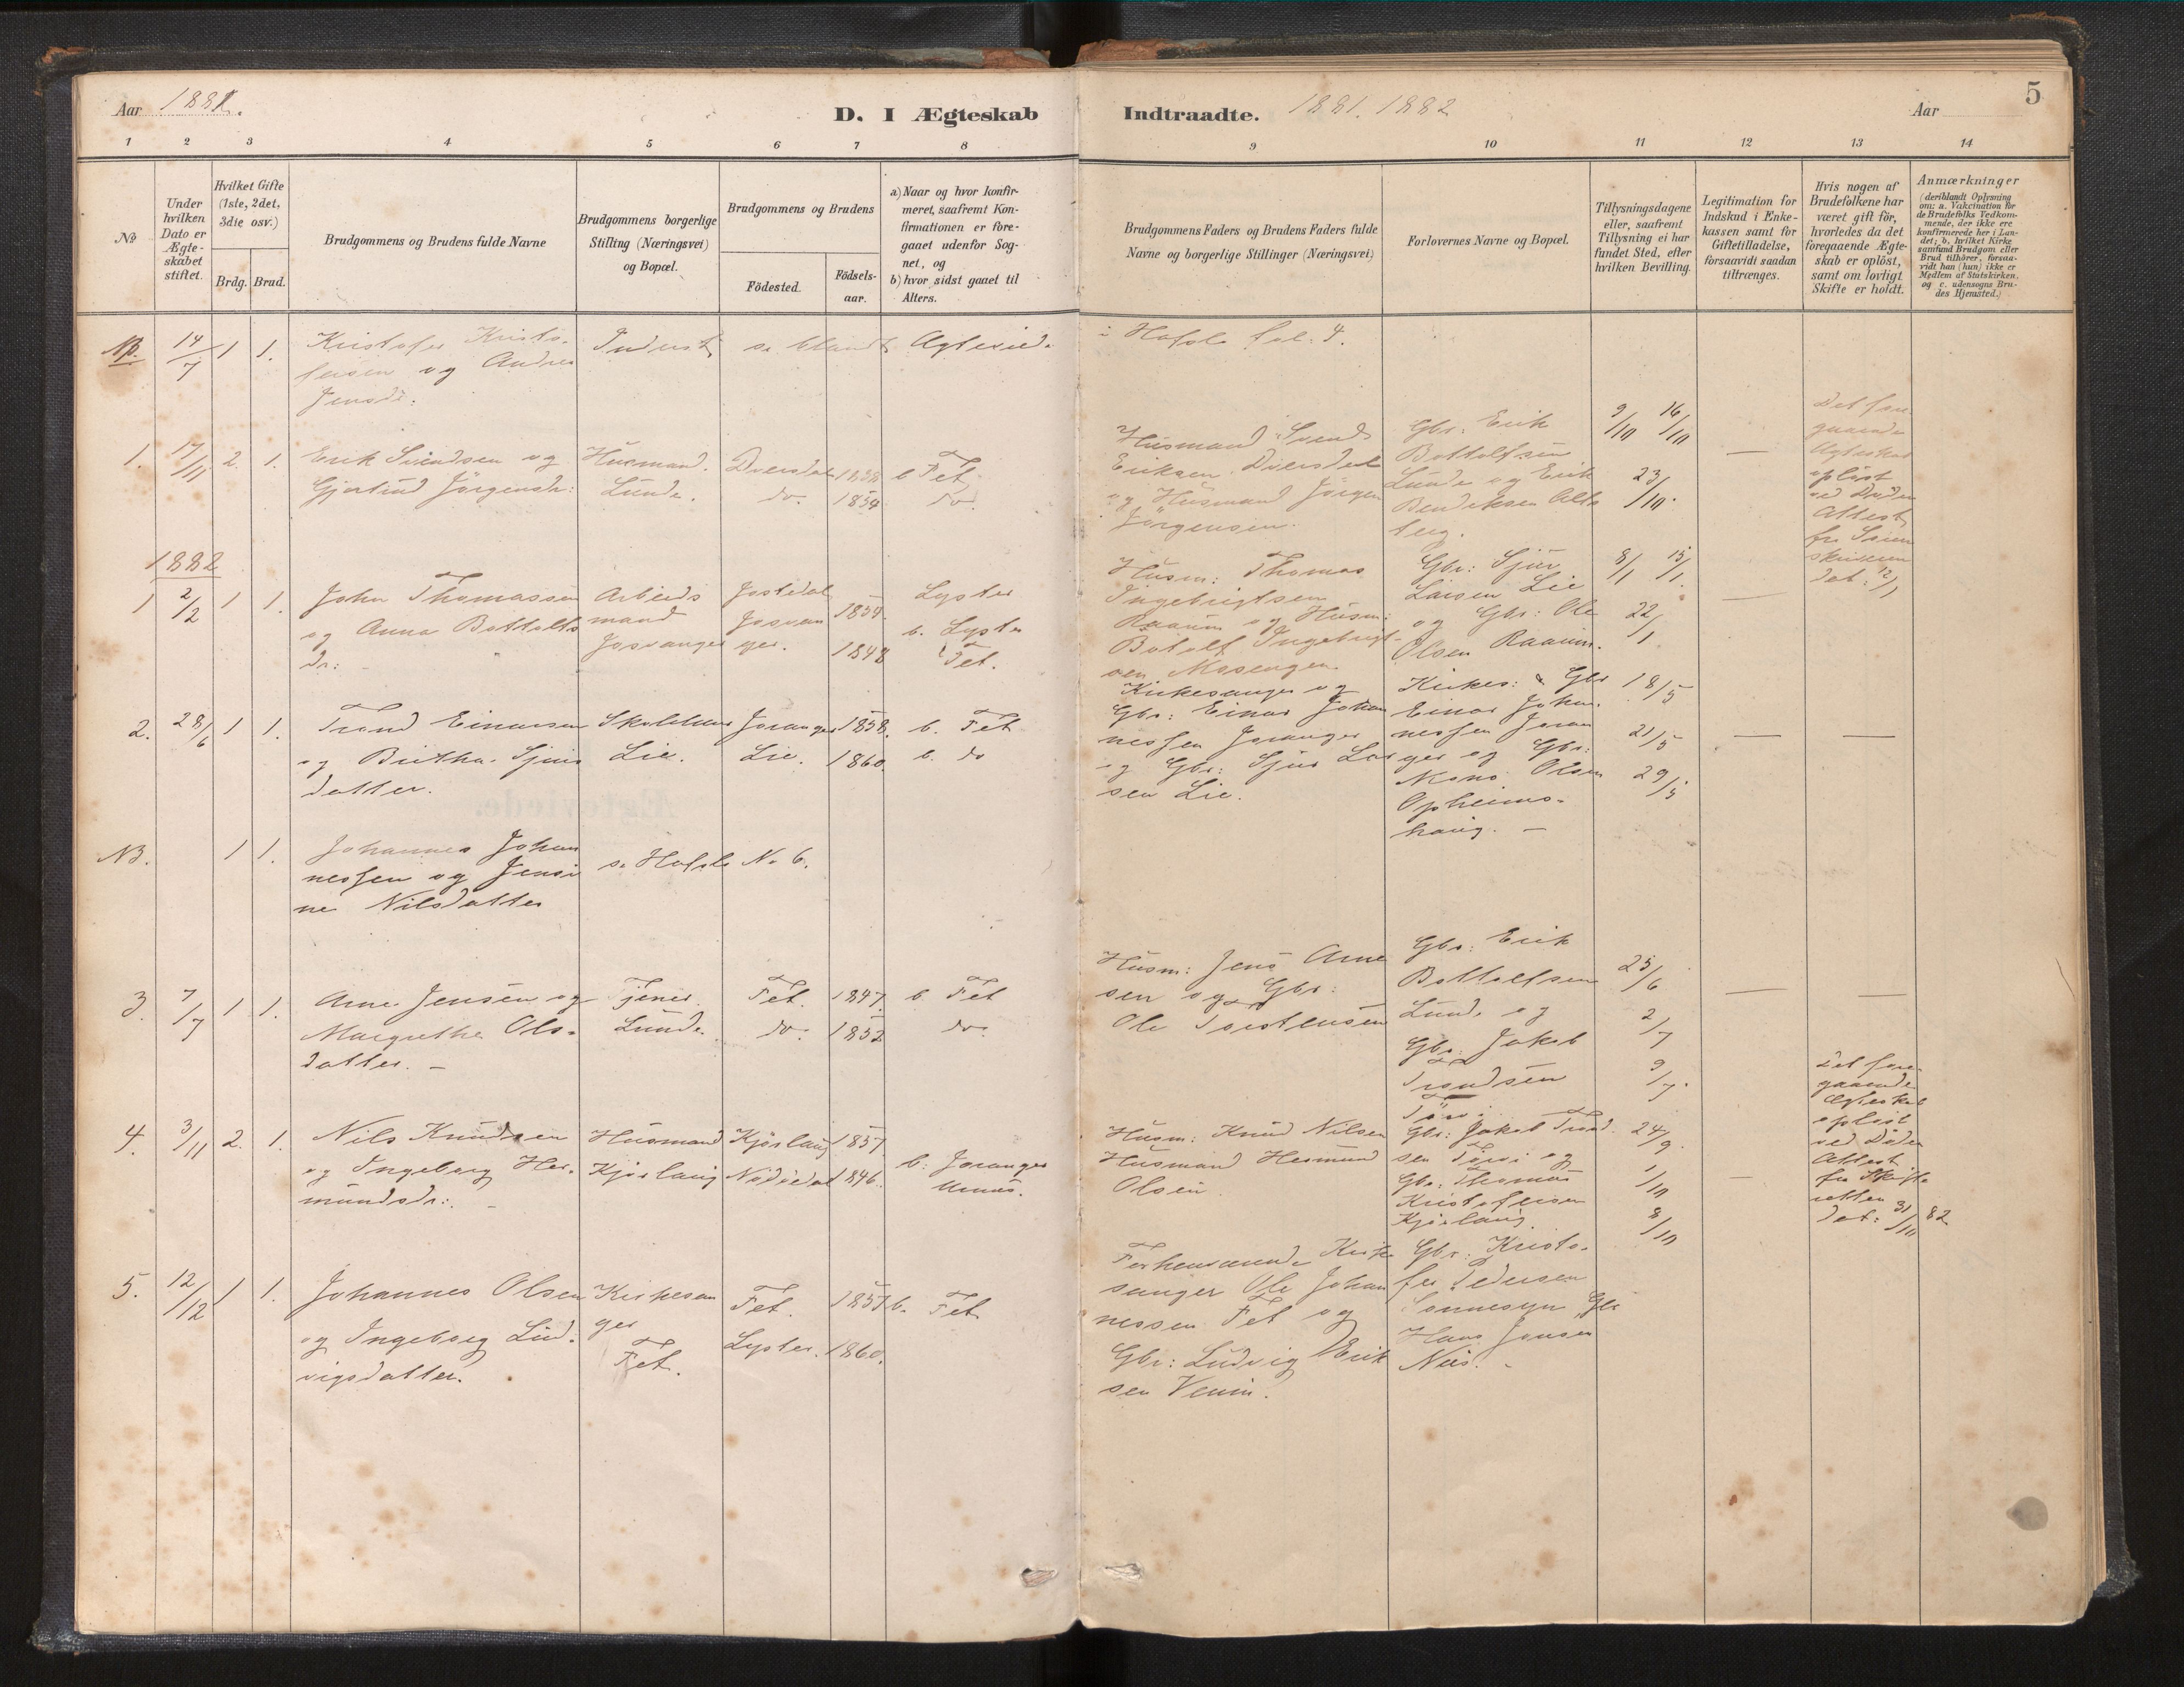 Aar 1881.
D. I Ægteskab
Indtraadte. 1881. 1882
Aar
5
1 2 3 4 5 6 7 8 9 10 11 12 13 14
No
Under hvilken Dato er Ægteskabet stiftet.
Hvilket Gifte (1ste, 2det, 3die osv.)
Brdg. Brud.
Brudgommens og Brudens fulde Navne
Brudgommens borgerlige Stilling (Næringsvei) og Bopæl.
Brudgommens og Brudens
Födested.
Födsels-aar.
a) Naar og hvor konfirmeret, saafremt Konfirmationen er foregaaet udenfor Sognet, og
b) hvor sidst gaaet til Alters.
Brudgommens Faders og Brudens Faders fulde Navne og borgerlige Stillinger (Næringsvei)
Forlovernes Navne og Bopæl.
Tillysningsdagene eller, saafremt Tillysning ei har fundet Sted, efter hvilken Bevilling.
Legitimation for Indskud i Enkekassen samt for Giftetilladelse, forsaavidt saadan tiltrænges.
Hvis nogen af Brudefolkene har været gift för, hvorledes da det foregaaende Ægteskab er oplöst, samt om lovligt Skifte er holdt.
Anmærkninger
(deriblandt Oplysning om: a. Vakcination för de Brudefolks Vedkommende, der ikke ere konfirmerede her i Landet; b. hvilket Kirkesamfund Brudgom eller Brud tilhörer, forsaavidt han (hun) ikke er Medlem af Statskirken, og c. udensogns Brudes Hjemsted.)
NB. 14/7 1 1. Kristofer Kristo-
fersen og
Jensd:
s. blandt
i Hafslo fol. 4.
1. 17/11 2. 1. Erik Svendsen og
Gjertrud Jörgensdr:
Husmand.
Lunde.
do.
1838
1854
b Fet
do.
Husmand Svend
Eriksen
og Husmand Jörgen
Jörgensen.
Gbr: Erik
Bottolfsen
Lunde og Erik
Bendiksen
9/10 16/10
23/10.
Det fore
gaaende
Ægteskab
oplöst
ved Döden
Attest
fra
dat: 12/1
1882
1 2/2 1 1. John Thomassen
og Anna Bottolfs
dr: -
Arbeids
mand
Jostedal
1854.
1848
Lyster
b. Lyster
Fet.
Husm: Thomas
Ingebrigtsen
Raaum og Husm:
Botolf Ingebrigt-
sen Mosengen
Gbr: Sjur
Larsen Lie
og Gbr: Ole
Olsen Raaum.
8/1 15/1.
22/1
2. 28/6 1 1. Trond Einarsen
og Britha Sjurs
datter.
Lie.
Joranger
Lie.
1858.
1860.
b. Fet
b. do
Kirkesanger og
Gbr: Einar Johan
nessen Joranger
og Gbr: Sjur Lar
sen Lie.
Kirkes: & Gbr
Einar Johan.
nessen Joran
ger og Gbr:
Olsen
Opheims-
haug. -
18/5
21/5
29/5
NB. 1 1. Johannes Johan
nessen og Jensi
ne Nilsdatter
s. Hafslo No 6.
3. 7/7 1 1. Arne Jensen og
Margrethe Ols-
datter. -
Tjener.
Lunde.
Fet.
do.
1847.
1852
b. Fet
do.
Husm: Jens Arne
sen og Gbr:
Ole Torstensen
Gbr: Erik
Bottolfsen
Lunde og
Gbr: Jakob
Trondsen
25/6
2/7
9/7.
4. 3/11 2. 1. Nils Knudsen
og Ingeborg Her-
mundsdr: -
Husmand
Kjörlaug
Kjörlaug
1857.
1846.
b: Joranger
Urnæs.
Husm: Knud Nilsen
Husmand Hermund
Olsen
Gbr: Jakob Trond
sen og
Gbr: Thomas
Kristofersen
Kjörlaug.
24/9.
1/10
8/10
Det fore-
gaaende
Ægteskab
oplöst
ved Döden
Attest
fra Skifte
retten
dat: 31/10 82
5. 12/12 1 1. Johannes Olsen
og Ingeborg Lud-
vigsdatter.
Kirkesan
ger
Fet.
Fet.
Lyster.
1857
1860.
b. Fet
Forhenværende Kirke
sanger Ole Johan
nessen Fet og
Gbr: Ludvig Erik
sen Venim.
Gbr: Kristo-
fer Pedersen
Gbr
Hans Jensen
Næs. -